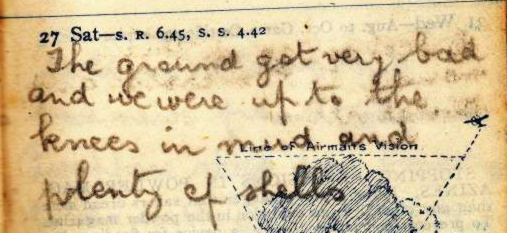 27 Sat—S. R. 6.45, S. S. 4.42
The ground got very bad
and we were up to the
knees in mud and
Line of Airman's Vision
plenty of shells